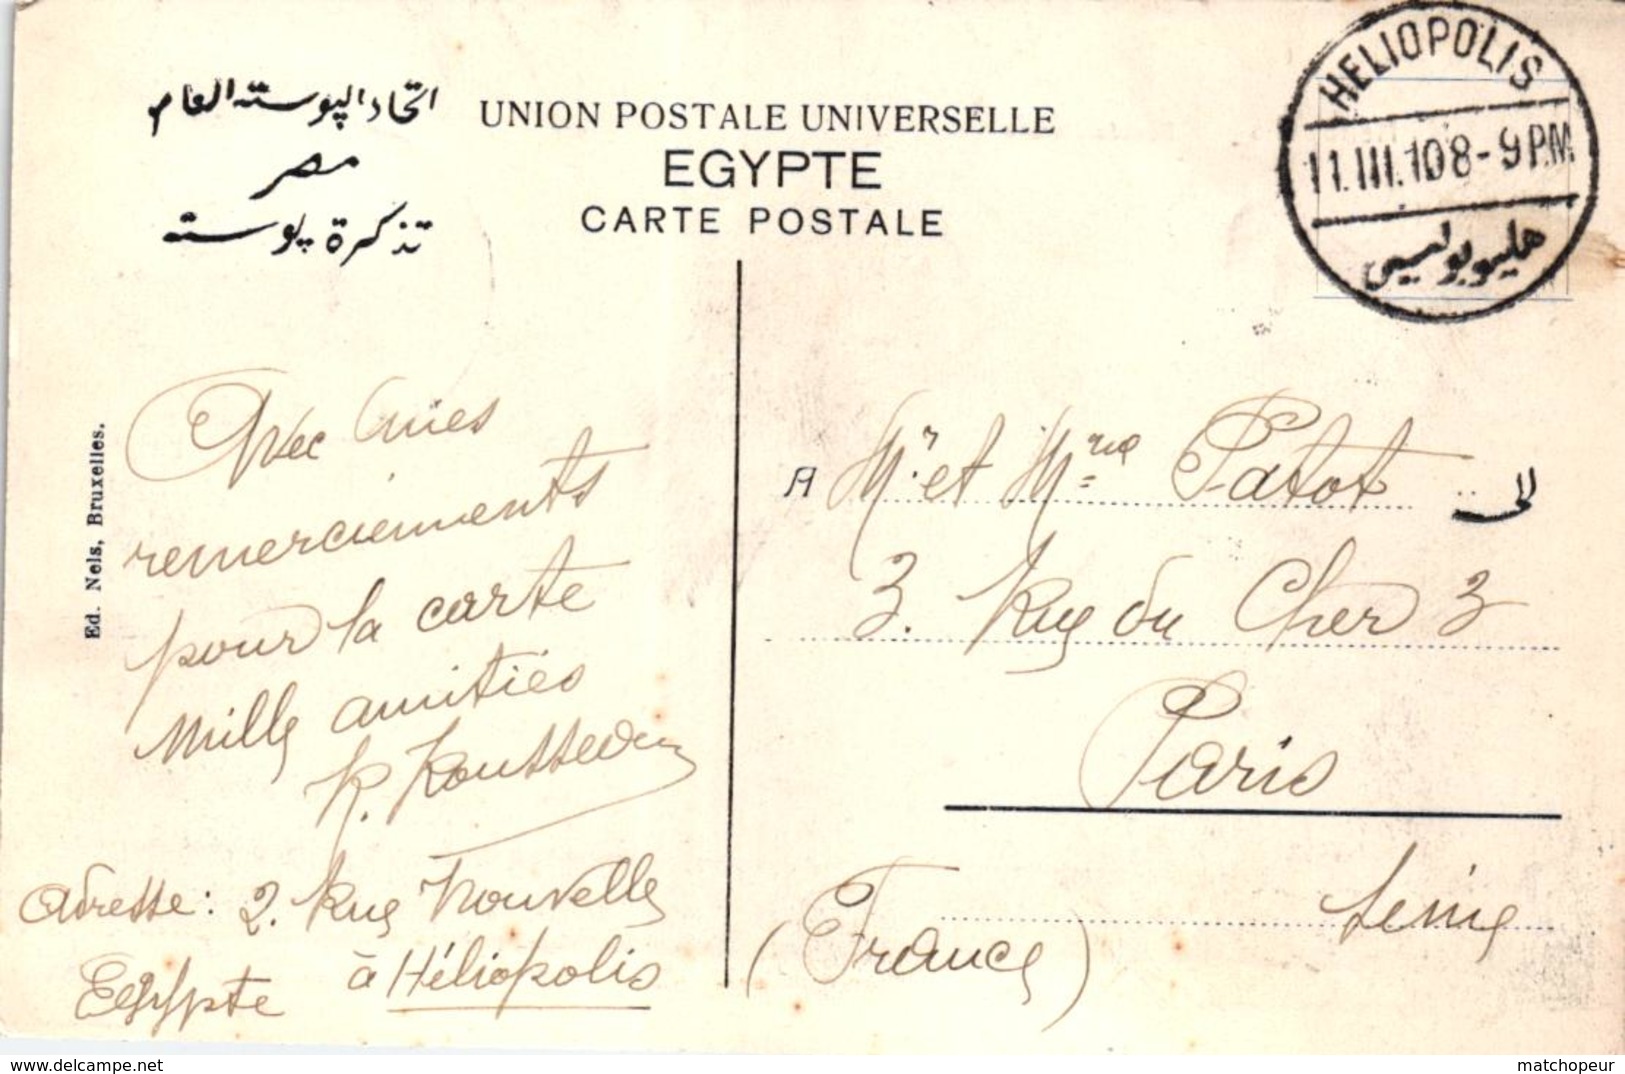 اتحاد الپوسته العام
مصر
تذكرة پوسته
UNION POSTALE UNIVERSELLE
EGYPTE
CARTE POSTALE
HELIOPOLIS
11.III.10 8-9 P.M
هليوبوليس
Ed. Nels, Bruxelles.
Avec mes
remerciements
pour la carte
Mille amitiés
Adresse: 2. Rue Nouvelle
à Héliopolis
Egypte
A Mr. et Mme Patot الى
3. Rue du Cher 3
Paris
Seine
(France)
delcampe.net
matchopeur